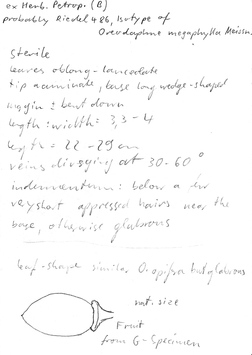 ex Herb. Petrop. (B)
probably Riedel 486, Isotype of
Oreodaphne megaphylla Meissn.
sterile
leaves oblong-lanceolate
tip acuminate, base long wedge-shaped
margin ± bent down
length : width = 3,3 - 4
length = 22 - 29 cm
veins diverging at 30-60°
indumentum: below a few
very short appressed hairs near the
base, otherwise glabrous
leaf-shape similar O. opifera but glabrous
nat. size
Fruit
from G-Specimen